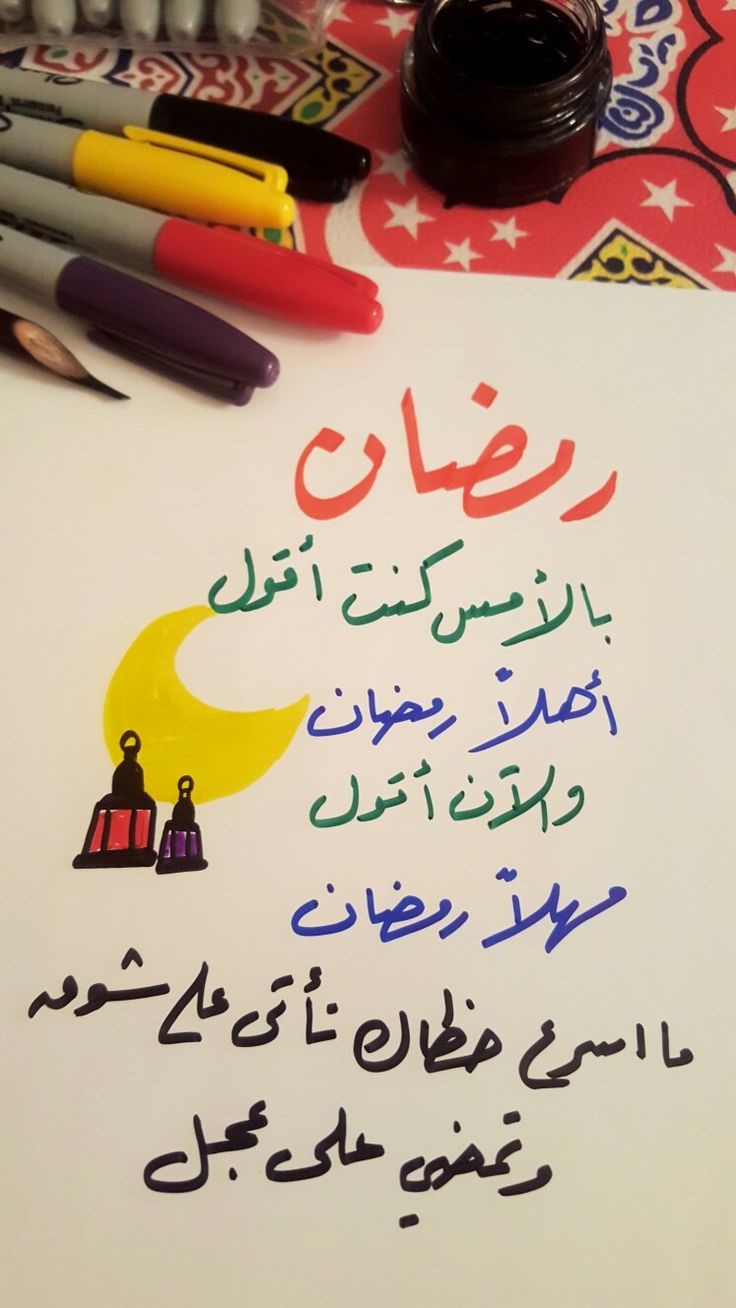 رمضان
بالأمس كنت أقول
أهلاً رمضان
والآن أقول
مهلاً رمضان
ما اسرع خطاك تأتى على شوق
وتمضي على عجل